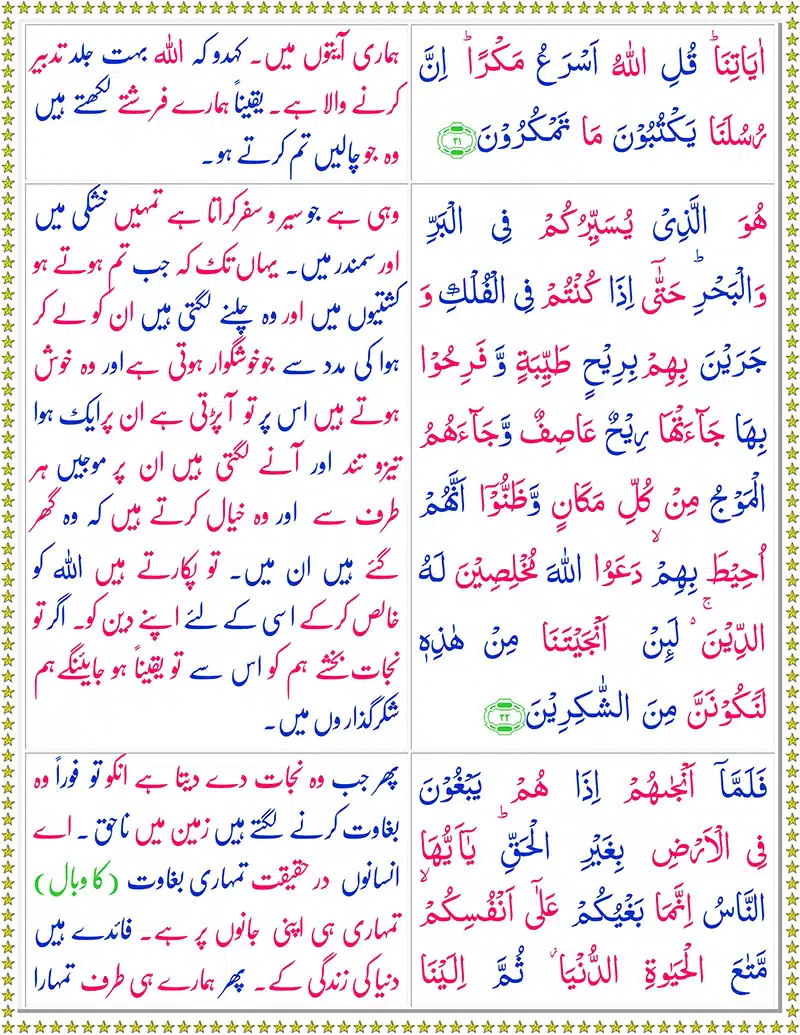 اٰيَاتِنَا ؕ قُلِ اللّٰهُ اَسْرَعُ مَكْرًا ؕ اِنَّ
رُسُلَنَا يَكْتُبُوْنَ مَا تَمْكُرُوْنَ ﴿۲۱﴾
ہماری آیتوں میں۔ کہدو کہ اللہ بہت جلد تدبیر
کرنے والا ہے۔ یقیناً ہمارے فرشتے لکھتے ہیں
وہ جو چالیں تم کرتے ہو۔
هُوَ الَّذِىْ يُسَيِّرُكُمْ فِى الْبَرِّ
وَالْبَحْرِ ؕ حَتّٰٓى اِذَا كُنْتُمْ فِى الْفُلْكِ ۚ وَ
جَرَيْنَ بِهِمْ بِرِيْحٍ طَيِّبَةٍ وَّ فَرِحُوْا
بِهَا جَآءَتْهَا رِيْحٌ عَاصِفٌ وَّجَآءَهُمُ
الْمَوْجُ مِنْ كُلِّ مَكَانٍ وَّظَنُّوْۤا اَنَّهُمْ
اُحِيْطَ بِهِمْ ۙ دَعَوُا اللّٰهَ مُخْلِصِيْنَ لَهُ
الدِّيْنَ ۚ لَئِنْ اَنْجَيْتَنَا مِنْ هٰذِهٖ
لَنَكُوْنَنَّ مِنَ الشّٰكِرِيْنَ ﴿۲۲﴾
وہی ہے جو سیر و سفر کراتا ہے تمہیں خشکی میں
اور سمندر میں۔ یہاں تک کہ جب تم ہوتے ہو
کشتیوں میں اور وہ چلنے لگتی ہیں ان کو لے کر
ہوا کی مدد سے جو خوشگوار ہوتی ہے اور وہ خوش
ہوتے ہیں اس پر تو آ پڑتی ہے ان پر ایک ہوا
تیز و تند اور آنے لگتی ہیں ان پر موجیں ہر
طرف سے اور وہ خیال کرتے ہیں کہ وہ گھر
گئے ہیں ان میں۔ تو پکارتے ہیں اللہ کو
خالص کرکے اسی کے لئے اپنے دین کو۔ اگر تو
نجات بخشے ہم کو اس سے تو یقیناً ہو جائینگے ہم
شکرگذاروں میں۔
فَلَمَّاۤ اَنْجٰٮهُمْ اِذَا هُمْ يَبْغُوْنَ
فِى الْاَرْضِ بِغَيْرِ الْحَقِّ ؕ يٰۤاَيُّهَا
النَّاسُ اِنَّمَا بَغْيُكُمْ عَلٰٓى اَنْفُسِكُمْ ۙ
مَّتٰعَ الْحَيٰوةِ الدُّنْيَا ۫ ثُمَّ اِلَيْنَا
پھر جب وہ نجات دے دیتا ہے انکو تو فوراً وہ
بغاوت کرنے لگتے ہیں زمین میں ناحق۔ اے
انسانوں در حقیقت تمہاری بغاوت (کا وبال)
تمہاری ہی اپنی جانوں پر ہے۔ فائدے ہیں
دنیا کی زندگی کے۔ پھر ہمارے ہی طرف تمہارا